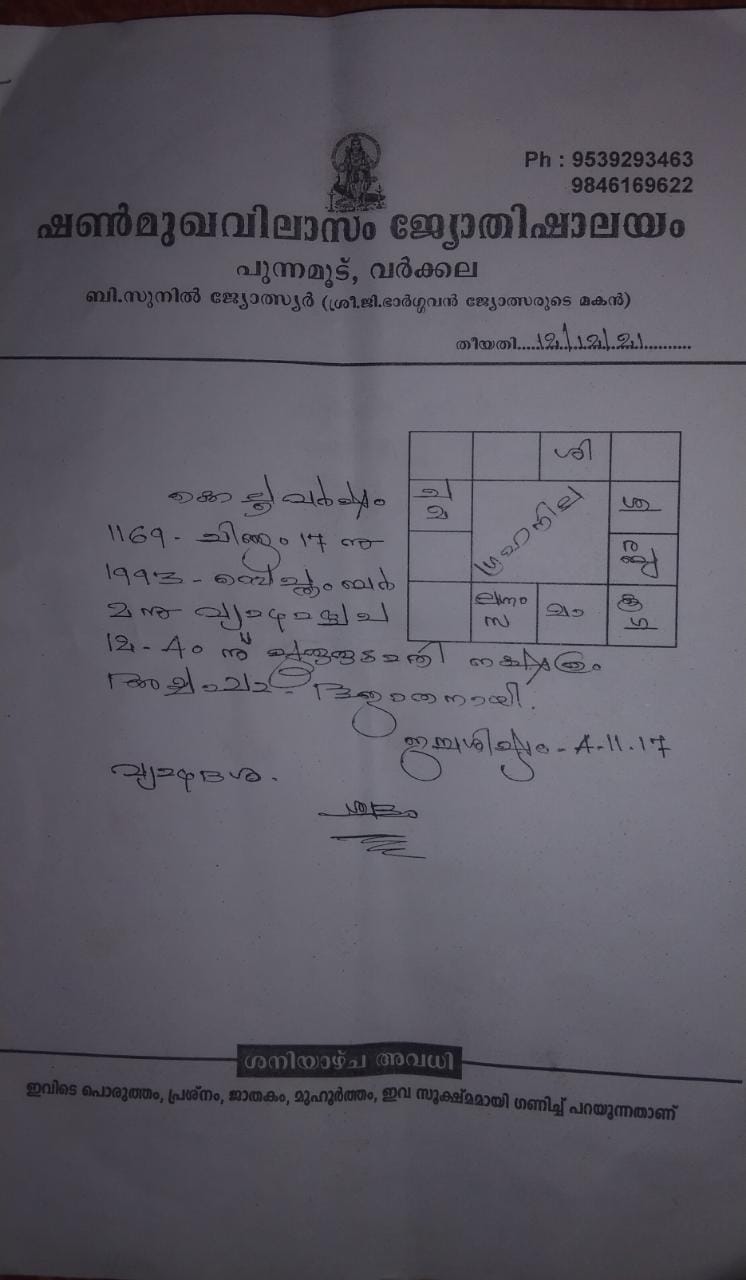 Ph : 9539293463
9846169622
ഷൺമുഖവിലാസം ജ്യോതിഷാലയം
പുന്നമൂട്, വർക്കല
ബി.സുനിൽ ജ്യോത്സ്യർ (ശ്രീ.ജി.ഭാർഗ്ഗവൻ ജ്യോത്സരുടെ മകൻ)
തീയതി
ശി
ച
മ
ഗ്രഹനില
ശു
ലഗ്നം
സ
മാ
കൊല്ലവർഷം
1169 - ചിങ്ങം 17 നു
1993 - സെപ്റ്റംബർ
2 നു വ്യാഴാഴ്ച
12 - 40 ന് നക്ഷത്രം
- A - 11 - 17
വ്യാഴദശ.
ശുഭം
ശനിയാഴ്ച അവധി
ഇവിടെ പൊരുത്തം, പ്രശ്നം, ജാതകം, മുഹൂർത്തം, ഇവ സൂക്ഷ്മമായി ഗണിച്ച് പറയുന്നതാണ്